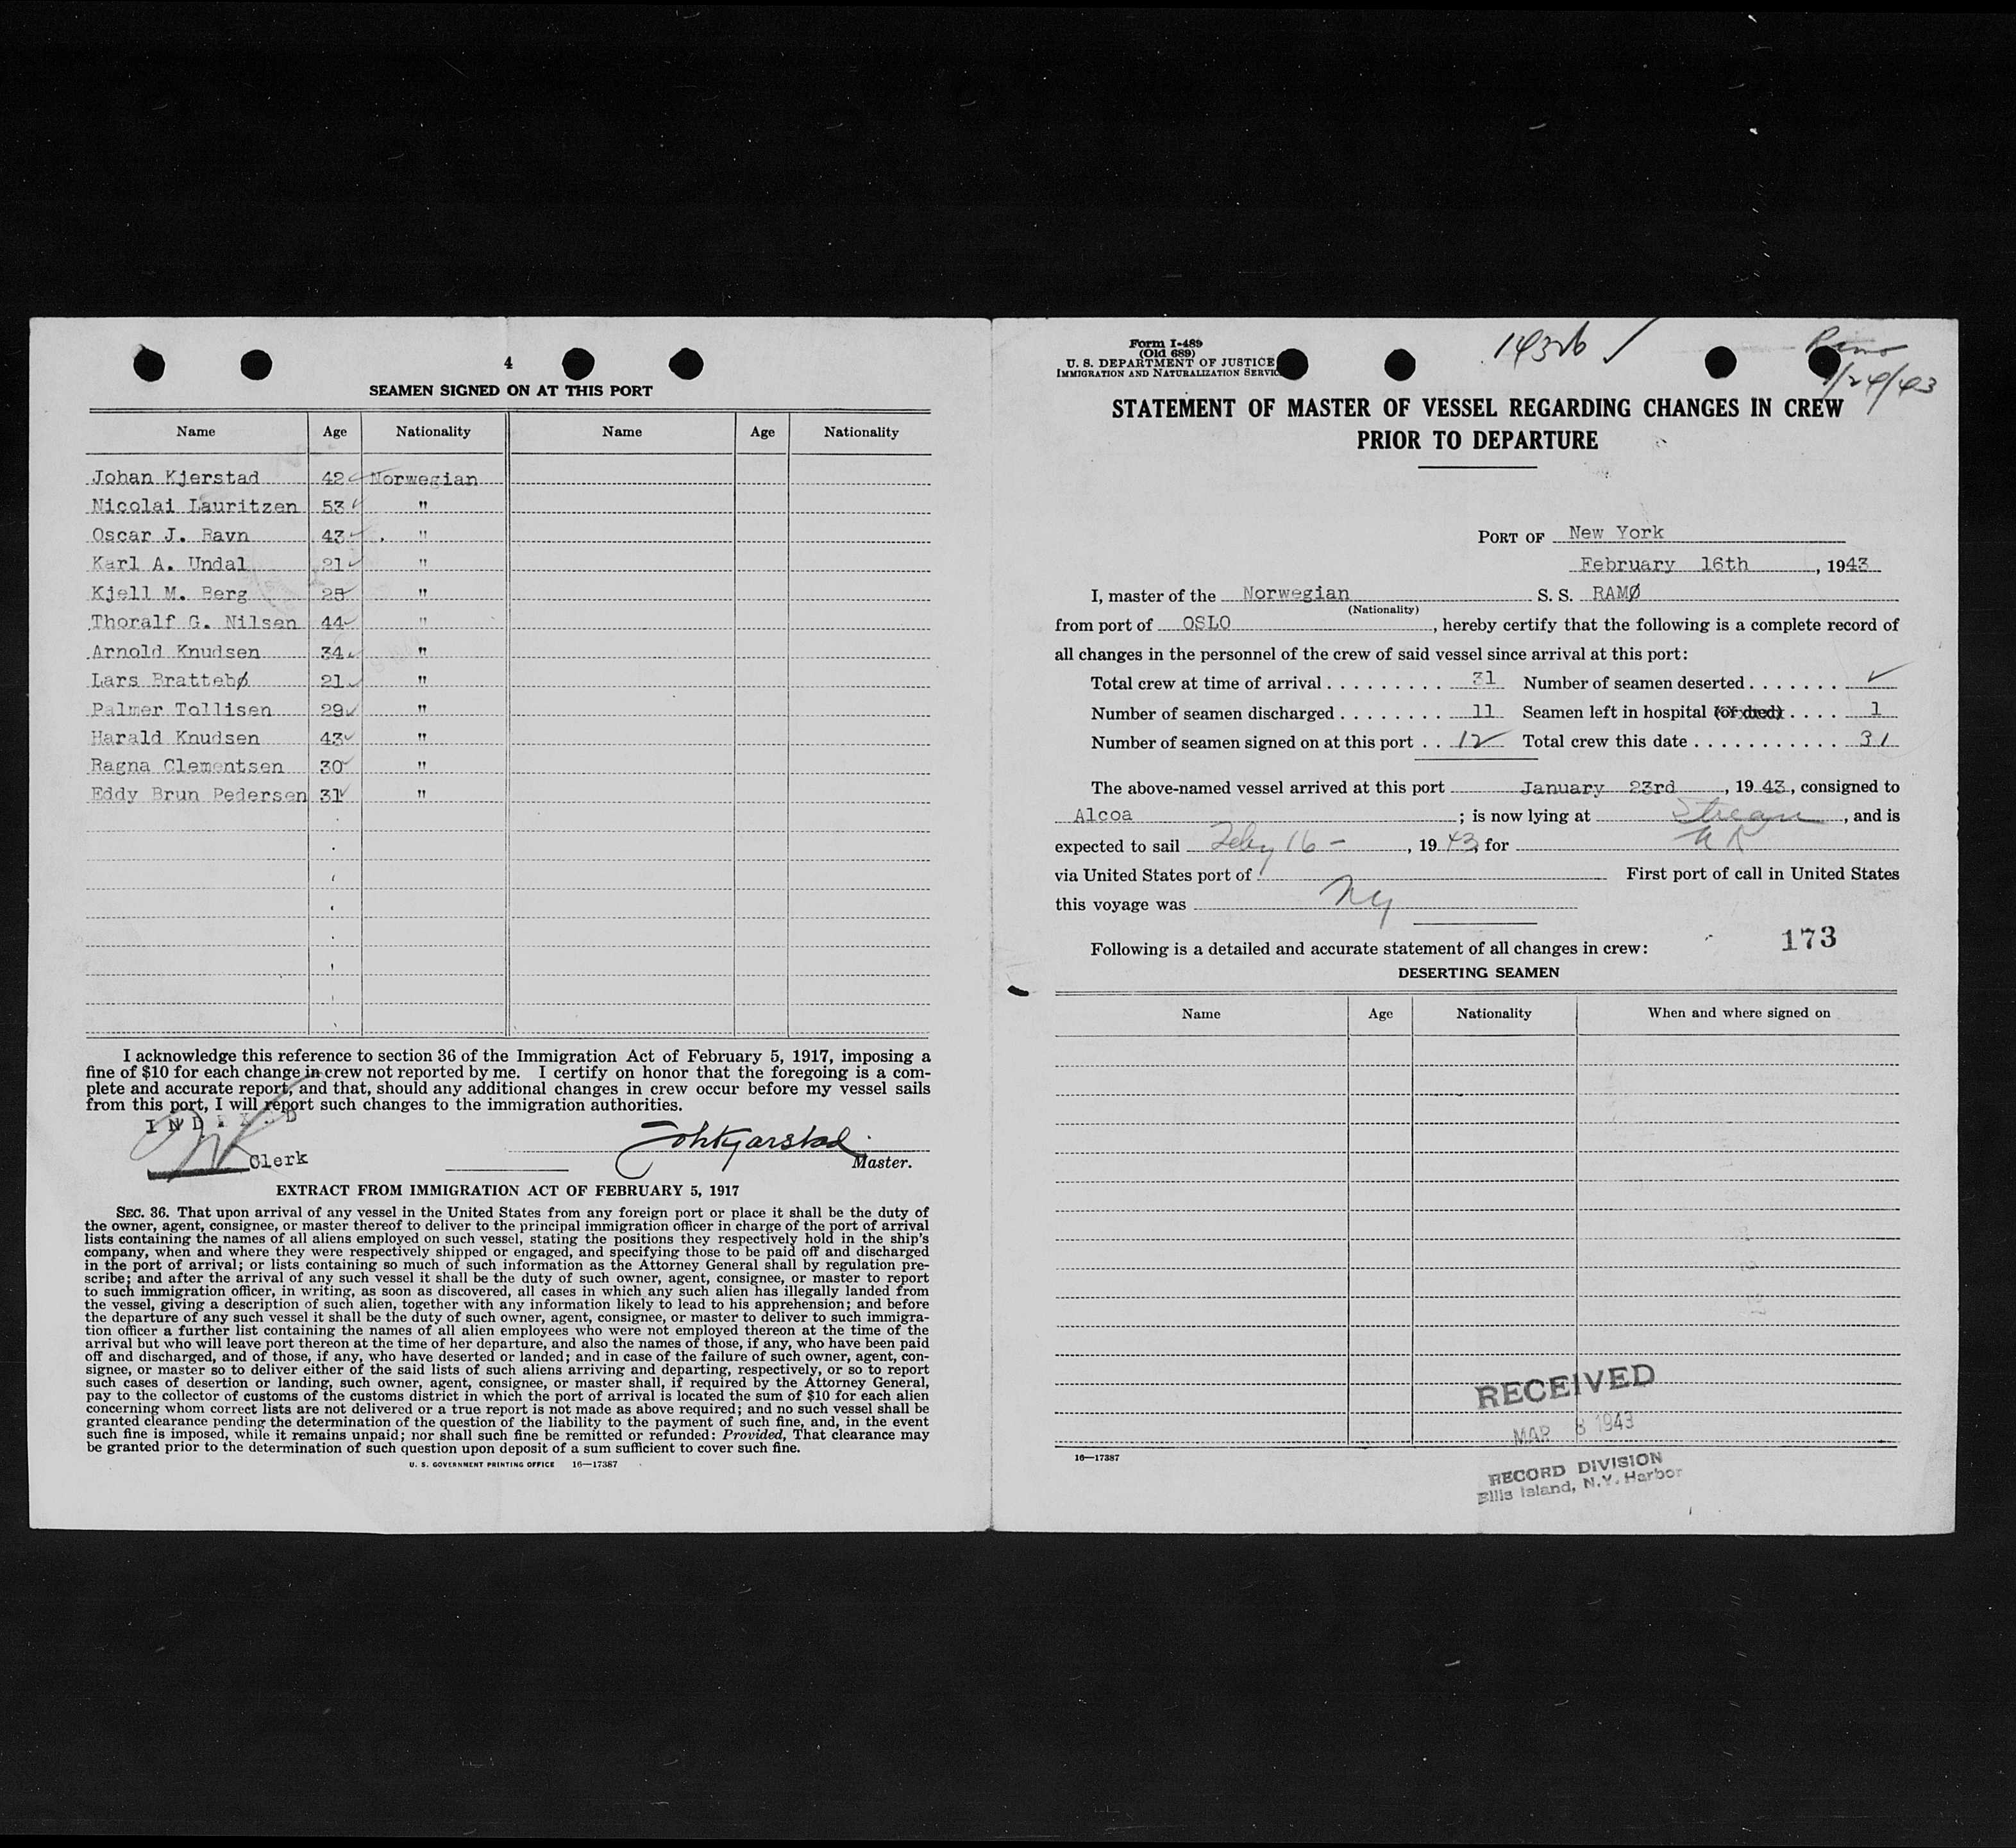 4
SEAMEN SIGNED ON AT THIS PORT
Name Age Nationality Name Age Nationality
Johan Kjerstad 42 Norwegian
Nicolai Lauritzen 53 "
Oscar J. Ravn 43 "
Karl A. Undal 21 "
Kjell M. Berg 25 "
Thoralf G. Nilsen 44 "
Arnold Knudsen 34 "
Lars Brattebø 21 "
Palmer Tollisen 29 "
Harald Knudsen 43 "
Ragna Clementsen 30 "
Eddy Brun Pedersen 31 "
I acknowledge this reference to section 36 of the Immigration Act of February 5, 1917, imposing a
fine of $10 for each change in crew not reported by me. I certify on honor that the foregoing is a com-
plete and accurate report, and that, should any additional changes in crew occur before my vessel sails
from this port, I will report such changes to the immigration authorities.
INDEXED
Clerk
Master.
EXTRACT FROM IMMIGRATION ACT OF FEBRUARY 5, 1917
SEC. 36. That upon arrival of any vessel in the United States from any foreign port or place it shall be the duty of
the owner, agent, consignee, or master thereof to deliver to the principal immigration officer in charge of the port of arrival
lists containing the names of all aliens employed on such vessel, stating the positions they respectively hold in the ship's
company, when and where they were respectively shipped or engaged, and specifying those to be paid off and discharged
in the port of arrival; or lists containing so much of such information as the Attorney General shall by regulation pre-
scribe; and after the arrival of any such vessel it shall be the duty of such owner, agent, consignee, or master to report
to such immigration officer, in writing, as soon as discovered, all cases in which any such alien has illegally landed from
the vessel, giving a description of such alien, together with any information likely to lead to his apprehension; and before
the departure of any such vessel it shall be the duty of such owner, agent, consignee, or master to deliver to such immigra-
tion officer a further list containing the names of all alien employees who were not employed thereon at the time of the
arrival but who will leave port thereon at the time of her departure, and also the names of those, if any, who have been paid
off and discharged, and of those, if any, who have deserted or landed; and in case of the failure of such owner, agent, con-
signee, or master so to deliver either of the said lists of such aliens arriving and departing, respectively, or so to report
such cases of desertion or landing, such owner, agent, consignee, or master shall, if required by the Attorney General,
pay to the collector of customs of the customs district in which the port of arrival is located the sum of $10 for each alien
concerning whom correct lists are not delivered or a true report is not made as above required; and no such vessel shall be
granted clearance pending the determination of the question of the liability to the payment of such fine, and, in the event
such fine is imposed, while it remains unpaid; nor shall such fine be remitted or refunded: Provided, That clearance may
be granted prior to the determination of such question upon deposit of a sum sufficient to cover such fine.
U. S. GOVERNMENT PRINTING OFFICE 16—17387
Form I-489
(Old 689)
U. S. DEPARTMENT OF JUSTICE
IMMIGRATION AND NATURALIZATION SERVIC
1/24/43
STATEMENT OF MASTER OF VESSEL REGARDING CHANGES IN CREW
PRIOR TO DEPARTURE
PORT OF New York
February 16th, 1943
I, master of the Norwegian S. S. RAMØ
(Nationality)
from port of OSLO, hereby certify that the following is a complete record of
all changes in the personnel of the crew of said vessel since arrival at this port:
Total crew at time of arrival . . . . . . . . . 31 Number of seamen deserted . . . . . . . ✓
Number of seamen discharged . . . . . . . . 11 Seamen left in hospital (or died) . . . . 1
Number of seamen signed on at this port . . 12 Total crew this date . . . . . . . . . . . 31
The above-named vessel arrived at this port January 23rd, 1943, consigned to
Alcoa; is now lying at Stream, and is
expected to sail Feby 16 -, 1943, for UK
via United States port of First port of call in United States
this voyage was NY
Following is a detailed and accurate statement of all changes in crew: 173
DESERTING SEAMEN
Name Age Nationality When and where signed on
RECEIVED
MAR 8 1943
16—17387
RECORD DIVISION
Ellis Island, N.Y. Harbor